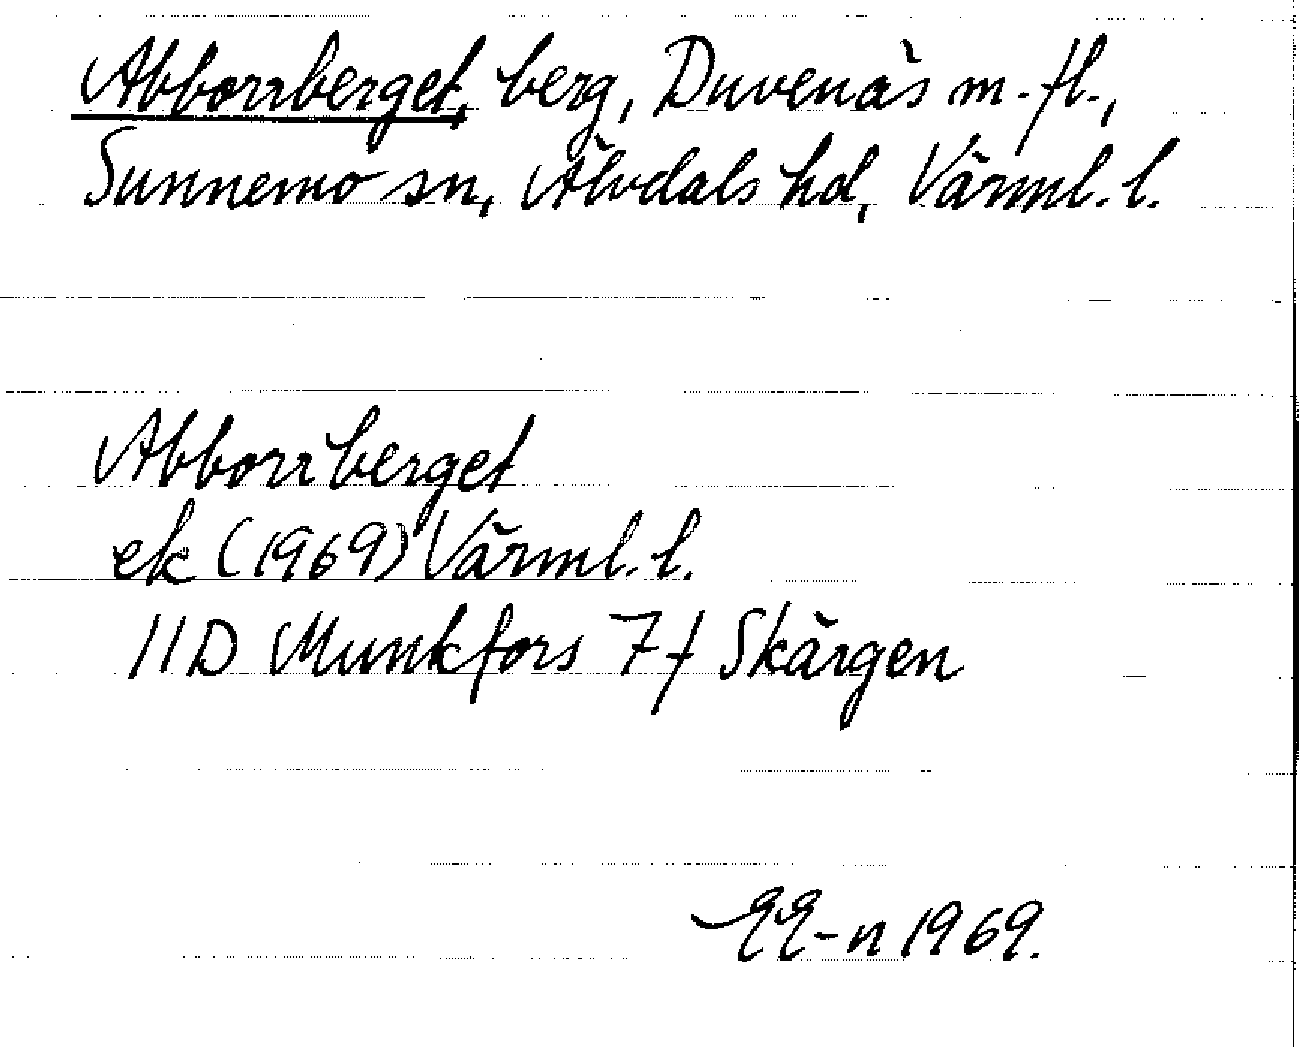 Abborrberget, berg, Duvenäs m.fl.,
Sunnemo sn, Älvdals hd, Värml. l.
Abborrberget
ek (1969) Värml. l.
11D Munkfors 7f Skärgen
EE-n 1969.